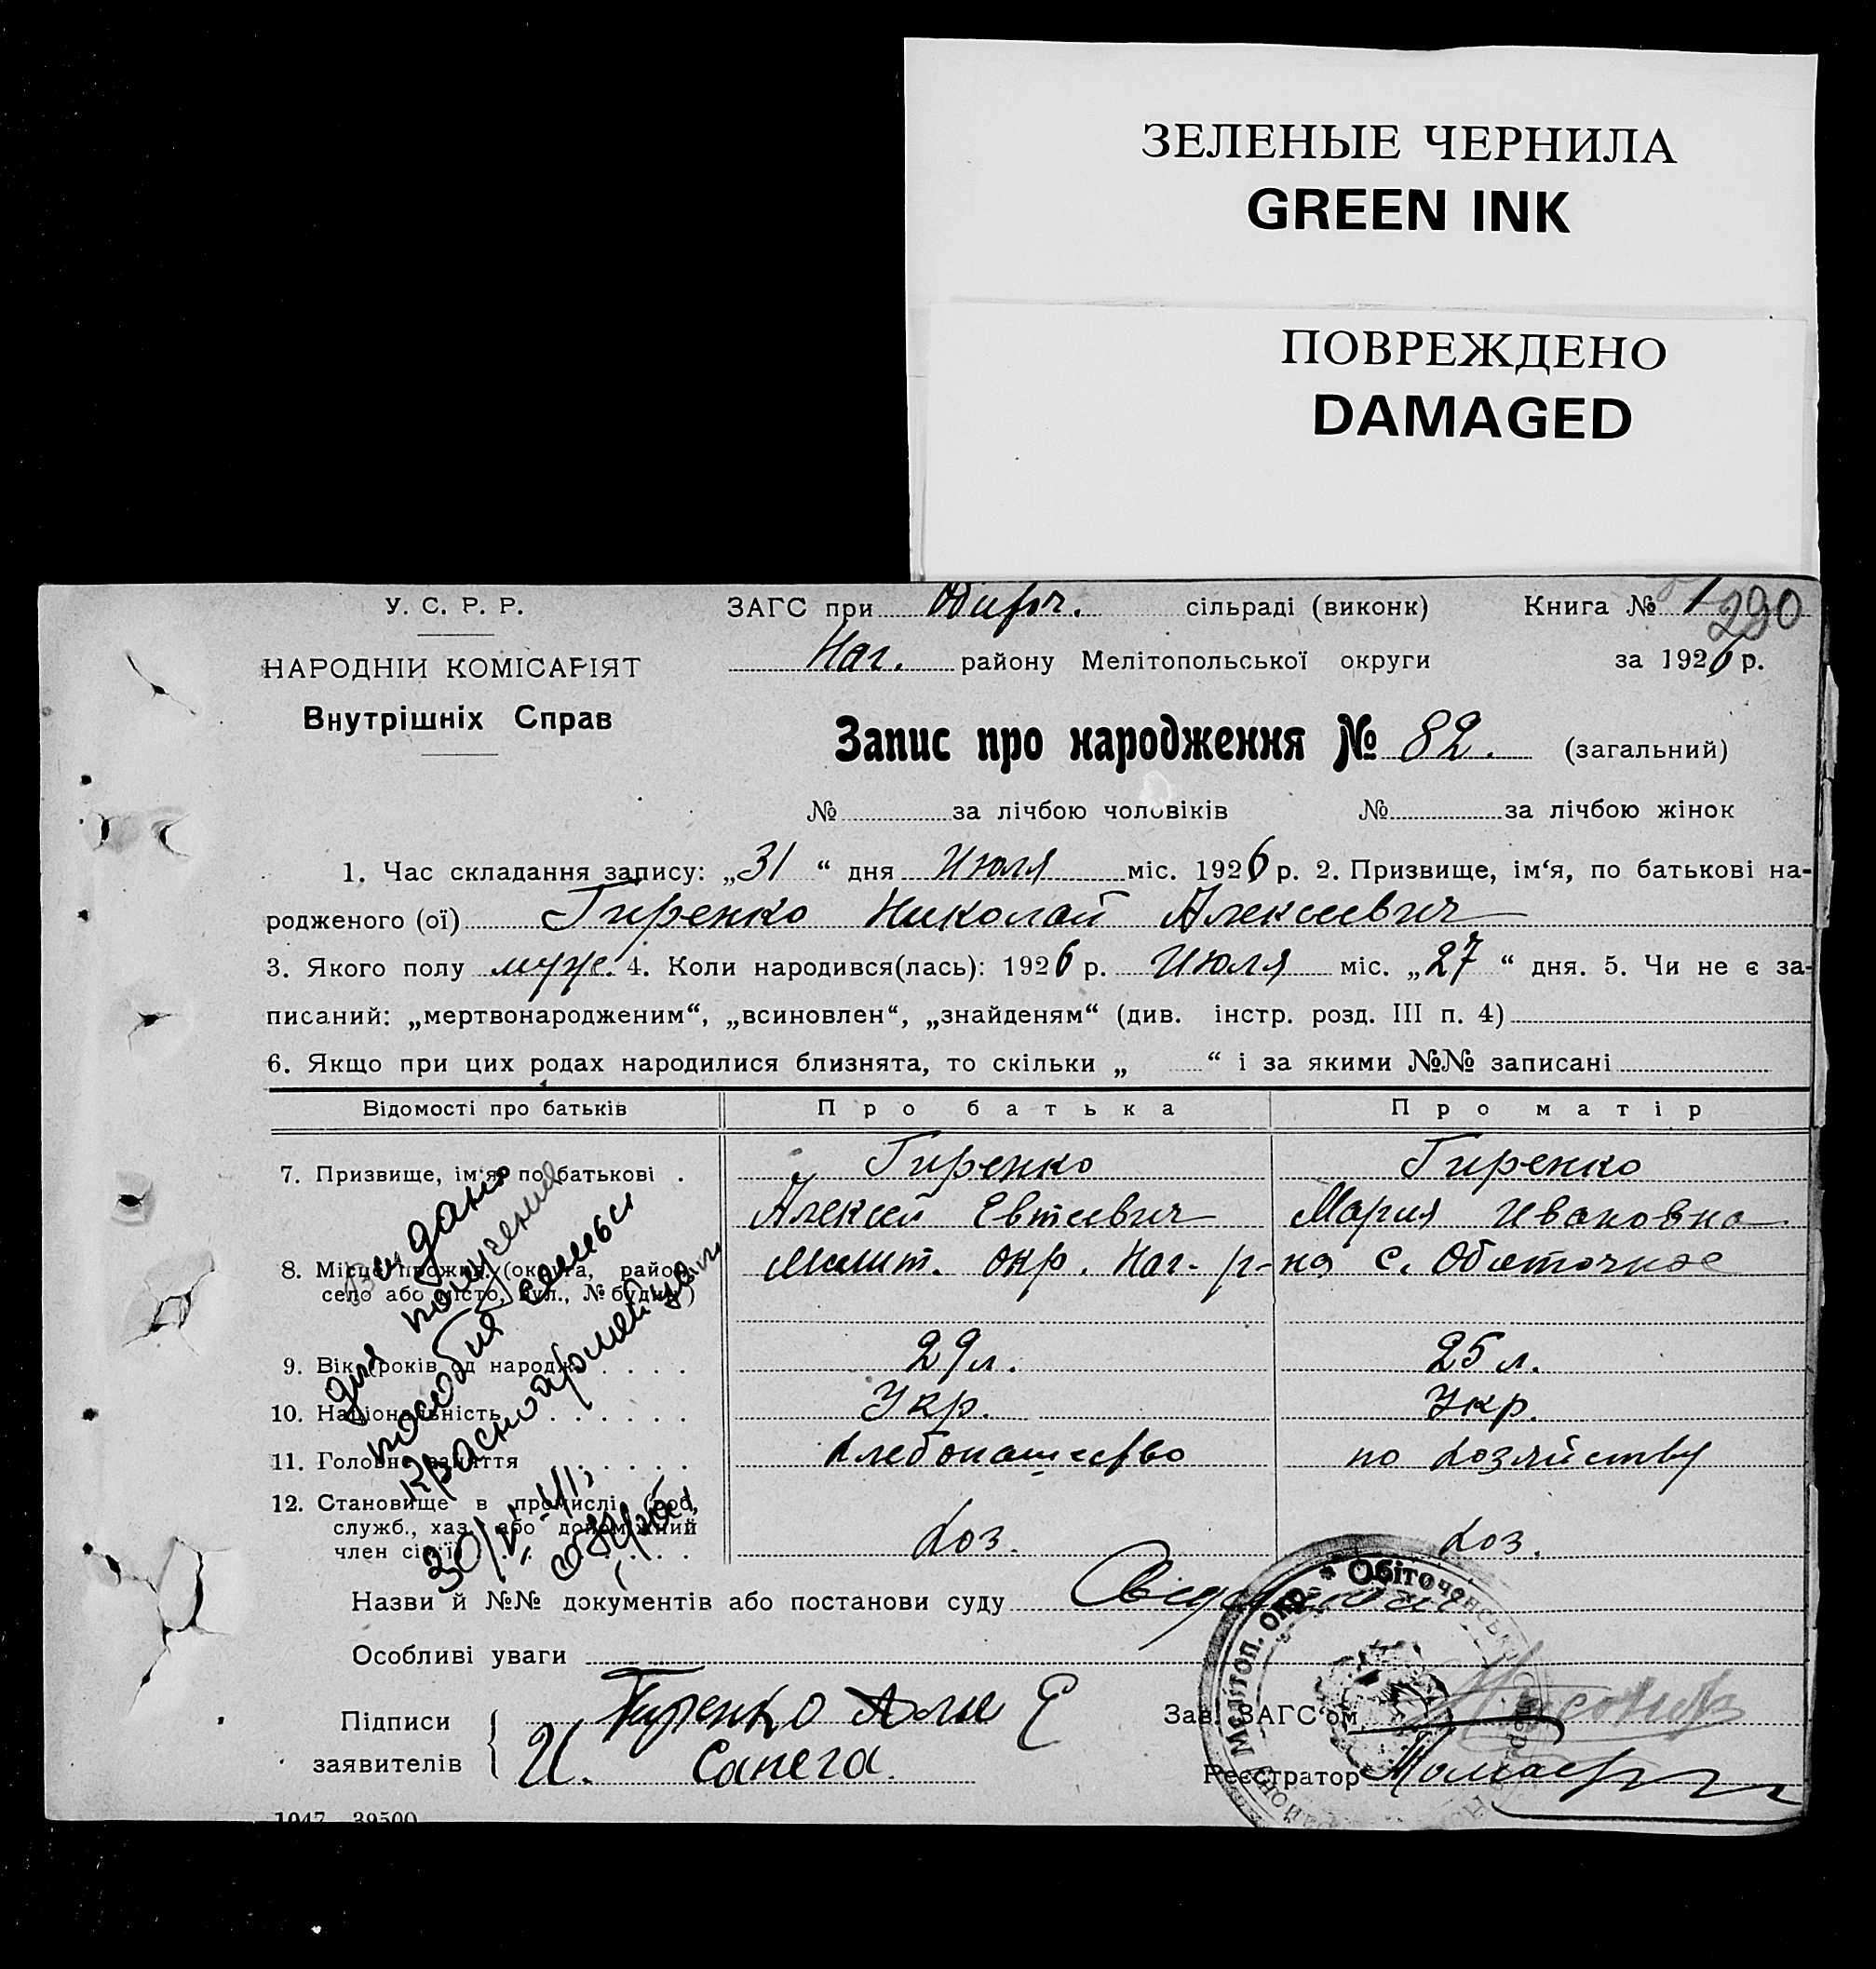 ЗЕЛЕНЫЕ ЧЕРНИЛА
GREEN INK
ПОВРЕЖДЕНО
DAMAGED
У. С. Р. Р.
ЗАГС при сільраді (виконк) Книга № 1
290
НАРОДНІЙ КОМІСАРІЯТ
Наг. району Мелітопольської округи за 1926 р.
Внутрішніх Справ
Запис про народження № 82. (загальний)
№ за лічбою чоловіків № за лічбою жінок
1. Час складання запису: „31“ дня Июля міс. 1926 р. 2. Призвище, ім‘я, по батькові на-
родженого (ої) Гиренко Николай Алексеевич
3. Якого полу муж. 4. Коли народився(лась): 1926 р. Июля міс. „27“ дня. 5. Чи не є за-
писаний: „мертвонародженим“, „всиновлен“, „знайденям“ (див. інстр. розд. III п. 4)
6. Якщо при цих родах народилися близнята, то скільки „ “ і за якими №№ записані
Відомості про батьків Про батька Про матір
7. Призвище, ім‘я, по батькові . Гиренко Гиренко
Алексей Евтеевич Мария Ивановна
8. Місце прожив. (округа, район, Мелит. окр. Наг. р-на с. Обиточное
село або місто, вул., № будин.)
9. Вік (років од народж. 29 л. 25 л.
10. Національність Укр. Укр.
11. Головне заняття хлебопашество по хозяйству
12. Становище в промислі (роб,
служб., хаз. або допоміжний
член сім‘ї) хоз. хоз.
выдано
для получения
пособия семьи
красноармейца
30/VI-41
Назви й №№ документів або постанови суду
Особливі уваги
Підписи заявителів Гиренко Але Е
И. Сапега.
Зав. ЗАГС‘ом
Реєстратор
Мелітоп. окр. * Обіточенськ
1047 39500